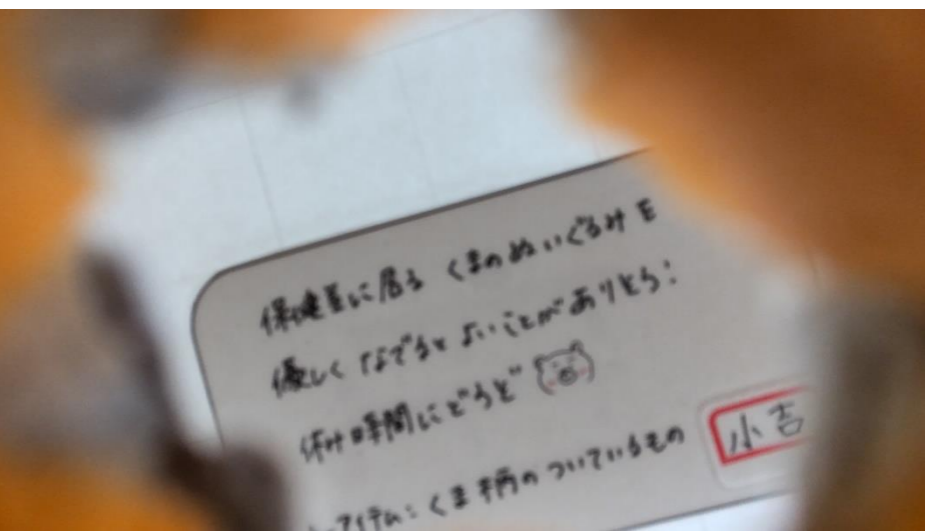 保健室に居る くまのぬいぐるみを
優しく なでると よいことがありそう！
休み時間にどうぞ
小吉
アイテム：くま柄のついているもの